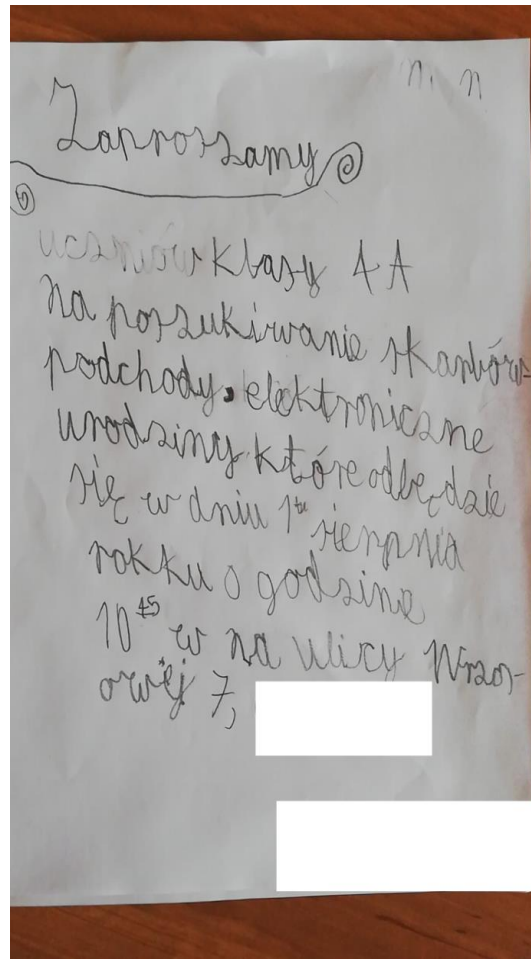 Zaproszamy
uczniów klasy 4 A
na poszukiwanie skarbów
podchody, elektroniczne
urodziny które odbędzie
się w dniu 1 sierpnia
rokku o godzinę
10 45 w na ulicy Wrzos-
owej 7,